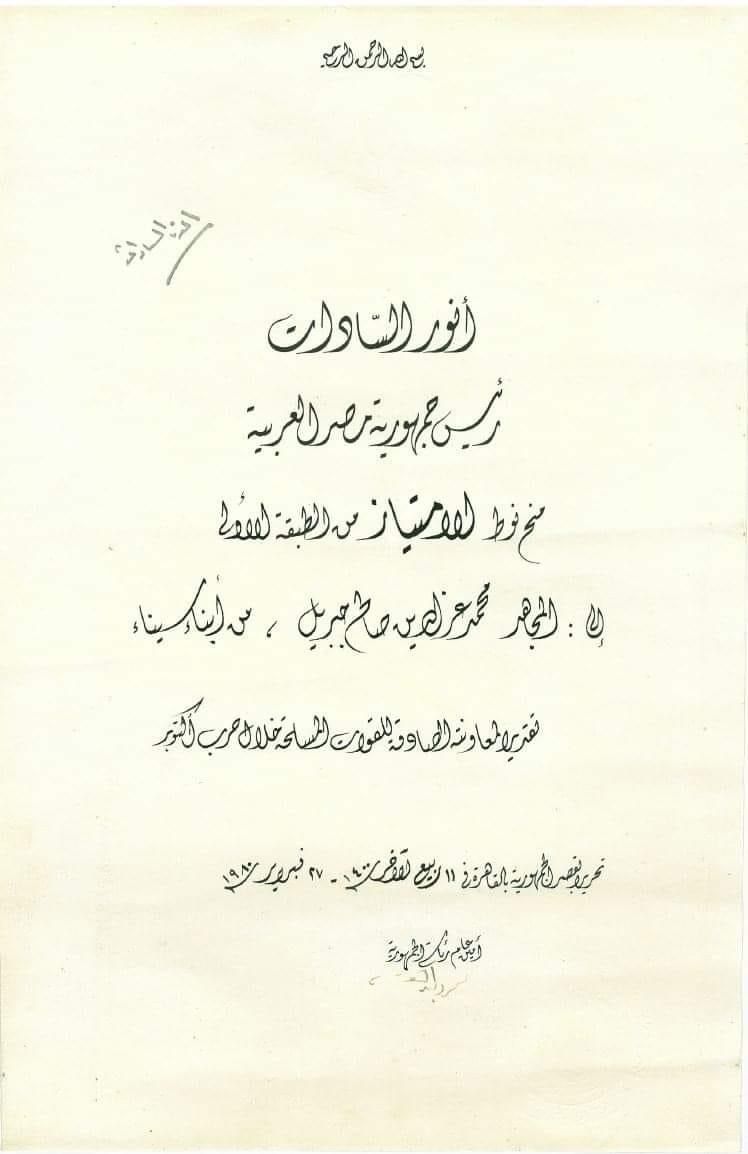 بسم الله الرحمن الرحيم
أنور السادات
أنور السّادات
رئيس جمهورية مصر العربية
منح نوط الامتياز من الطبقة الأولى
إلى : المجاهد محمد عز الدين صالح جبريل ، من أبناء سيناء
تقديرا لمعاونته الصادقة للقوات المسلحة خلال حرب أكتوبر
تحريرا بقصر الجمهورية بالقاهرة في ١١ ربيع الآخر سنة ١٤٠٠ - ٢٧ فبراير سنة ١٩٨٠
أمين عام رئاسة الجمهورية